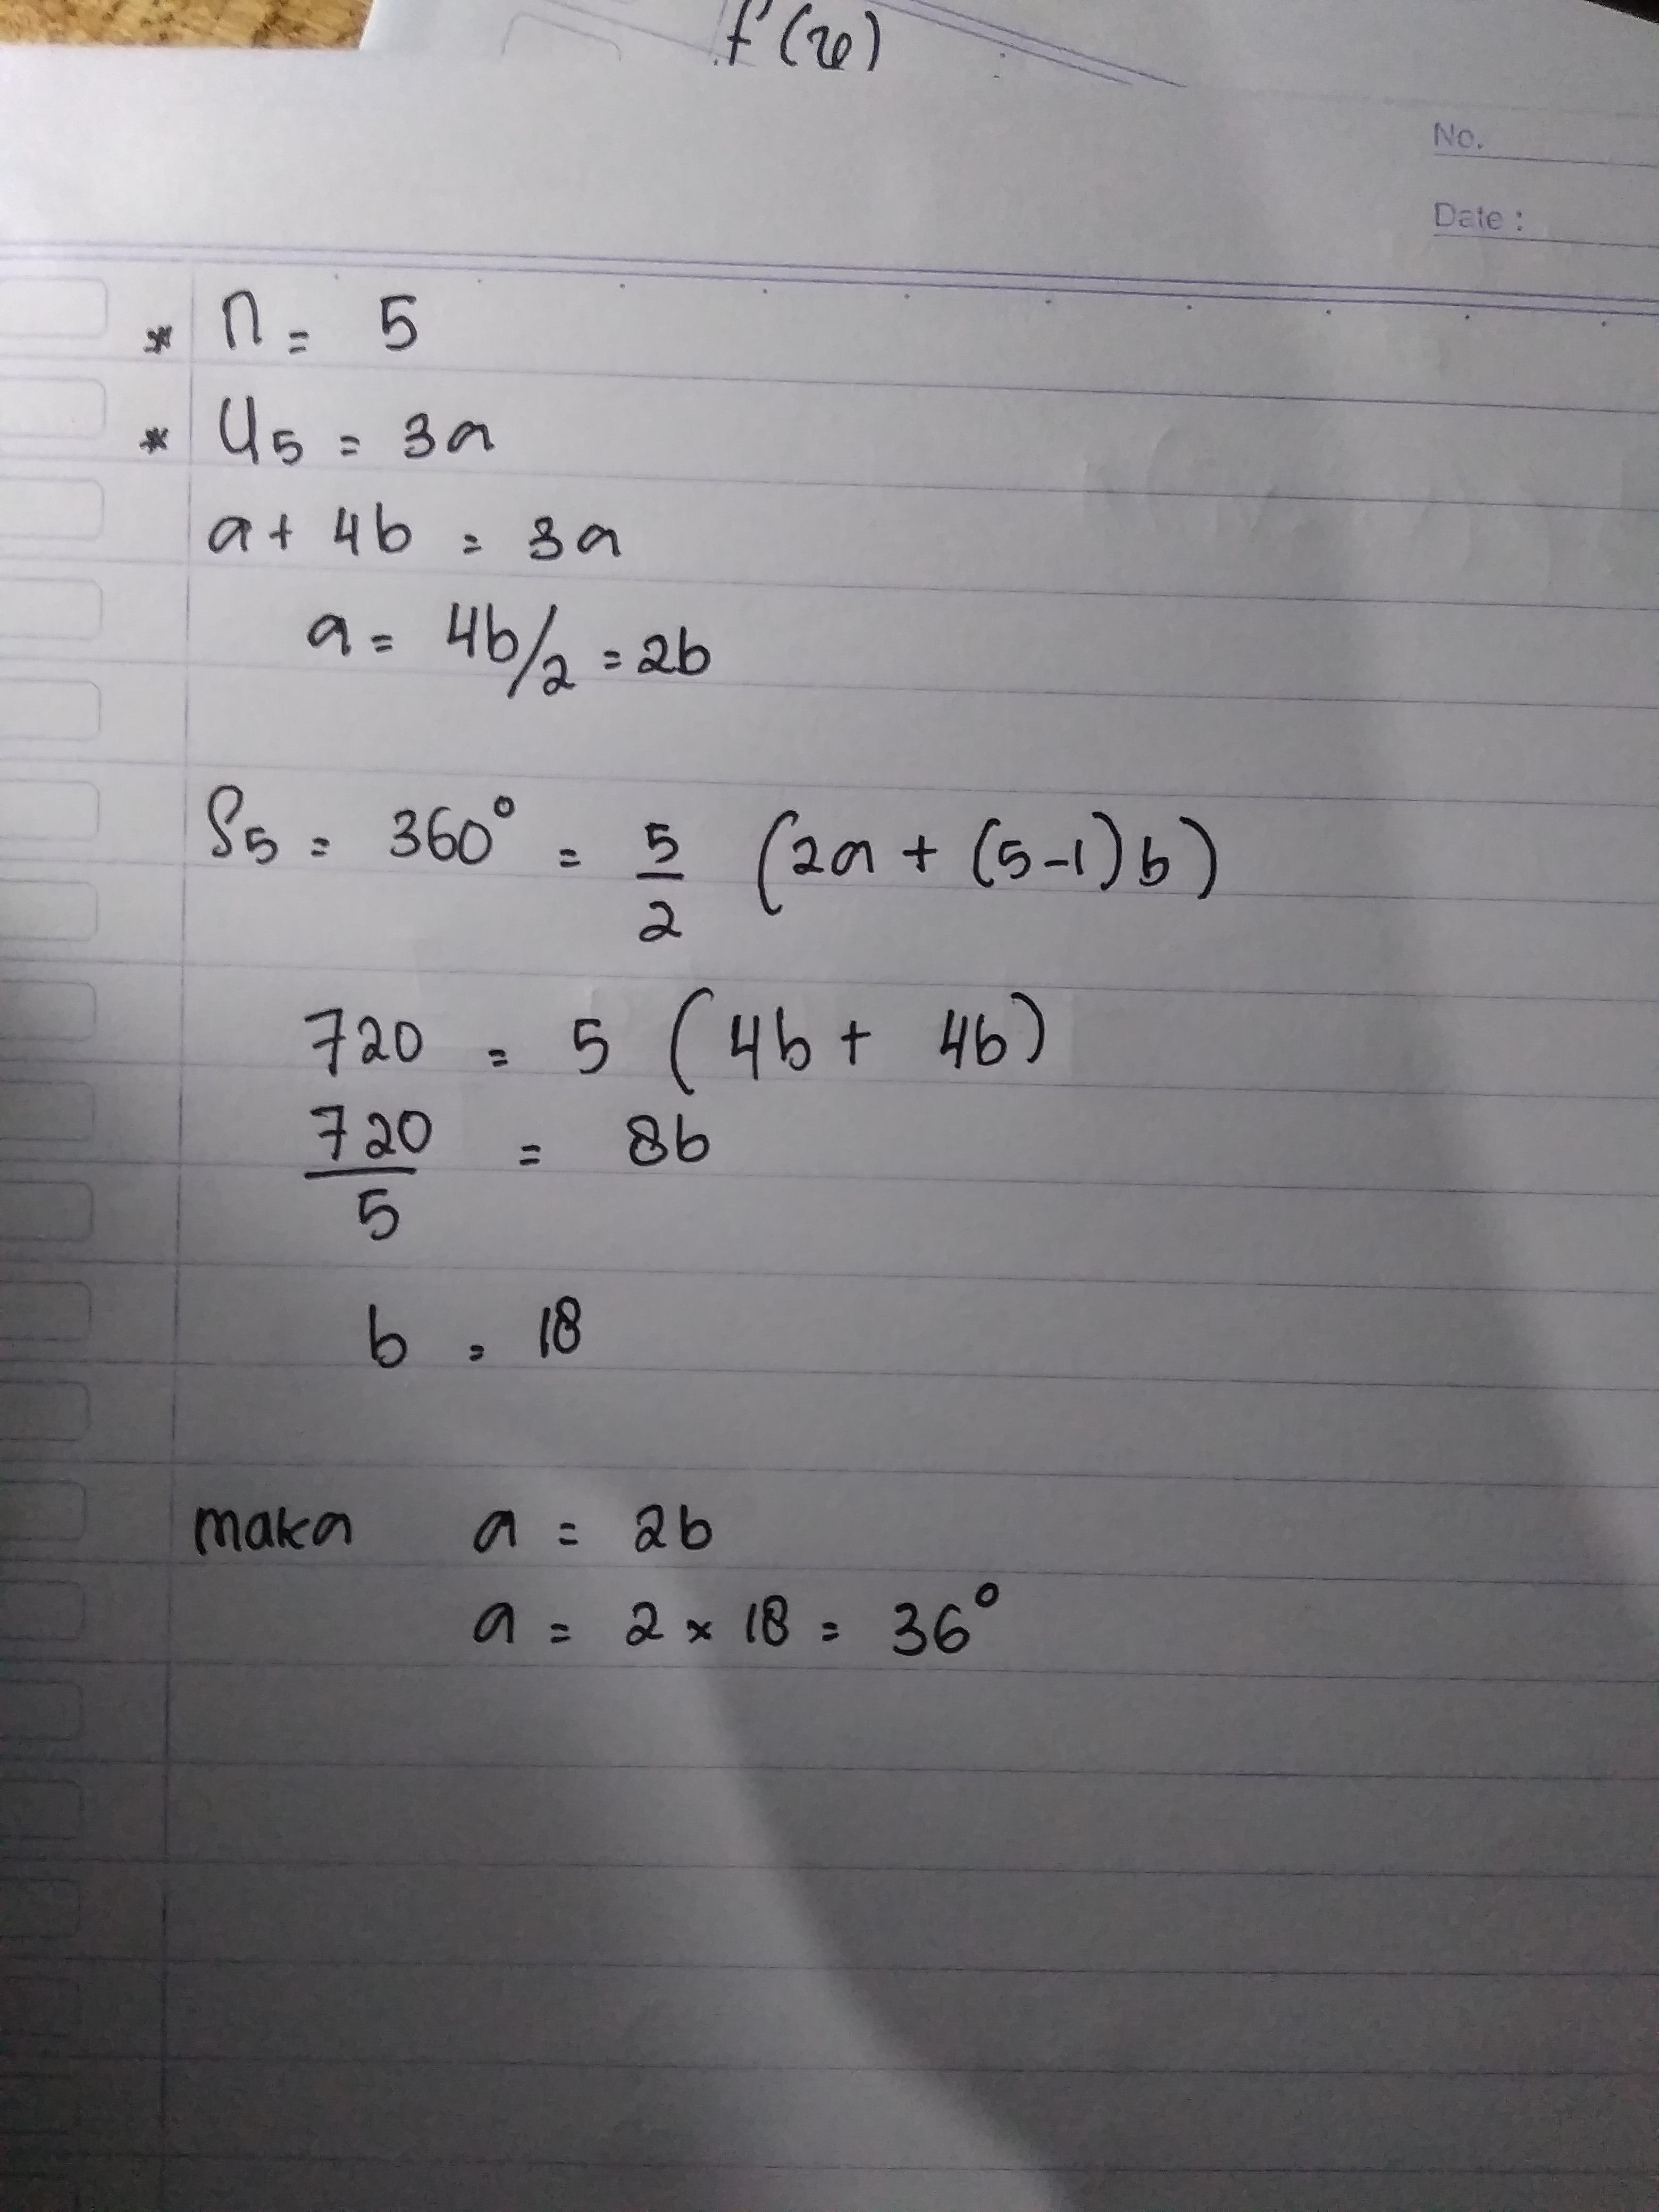 f(x)
No.
Date :
* n = 5
* U5 = 3a
a + 4b = 3a
a = 4b/2 = 2b
S5 = 360° = 5/2 (2a + (5-1)b)
720 = 5 (4b + 4b)
720/5 = 8b
b = 18
maka a = 2b
a = 2 × 18 = 36°